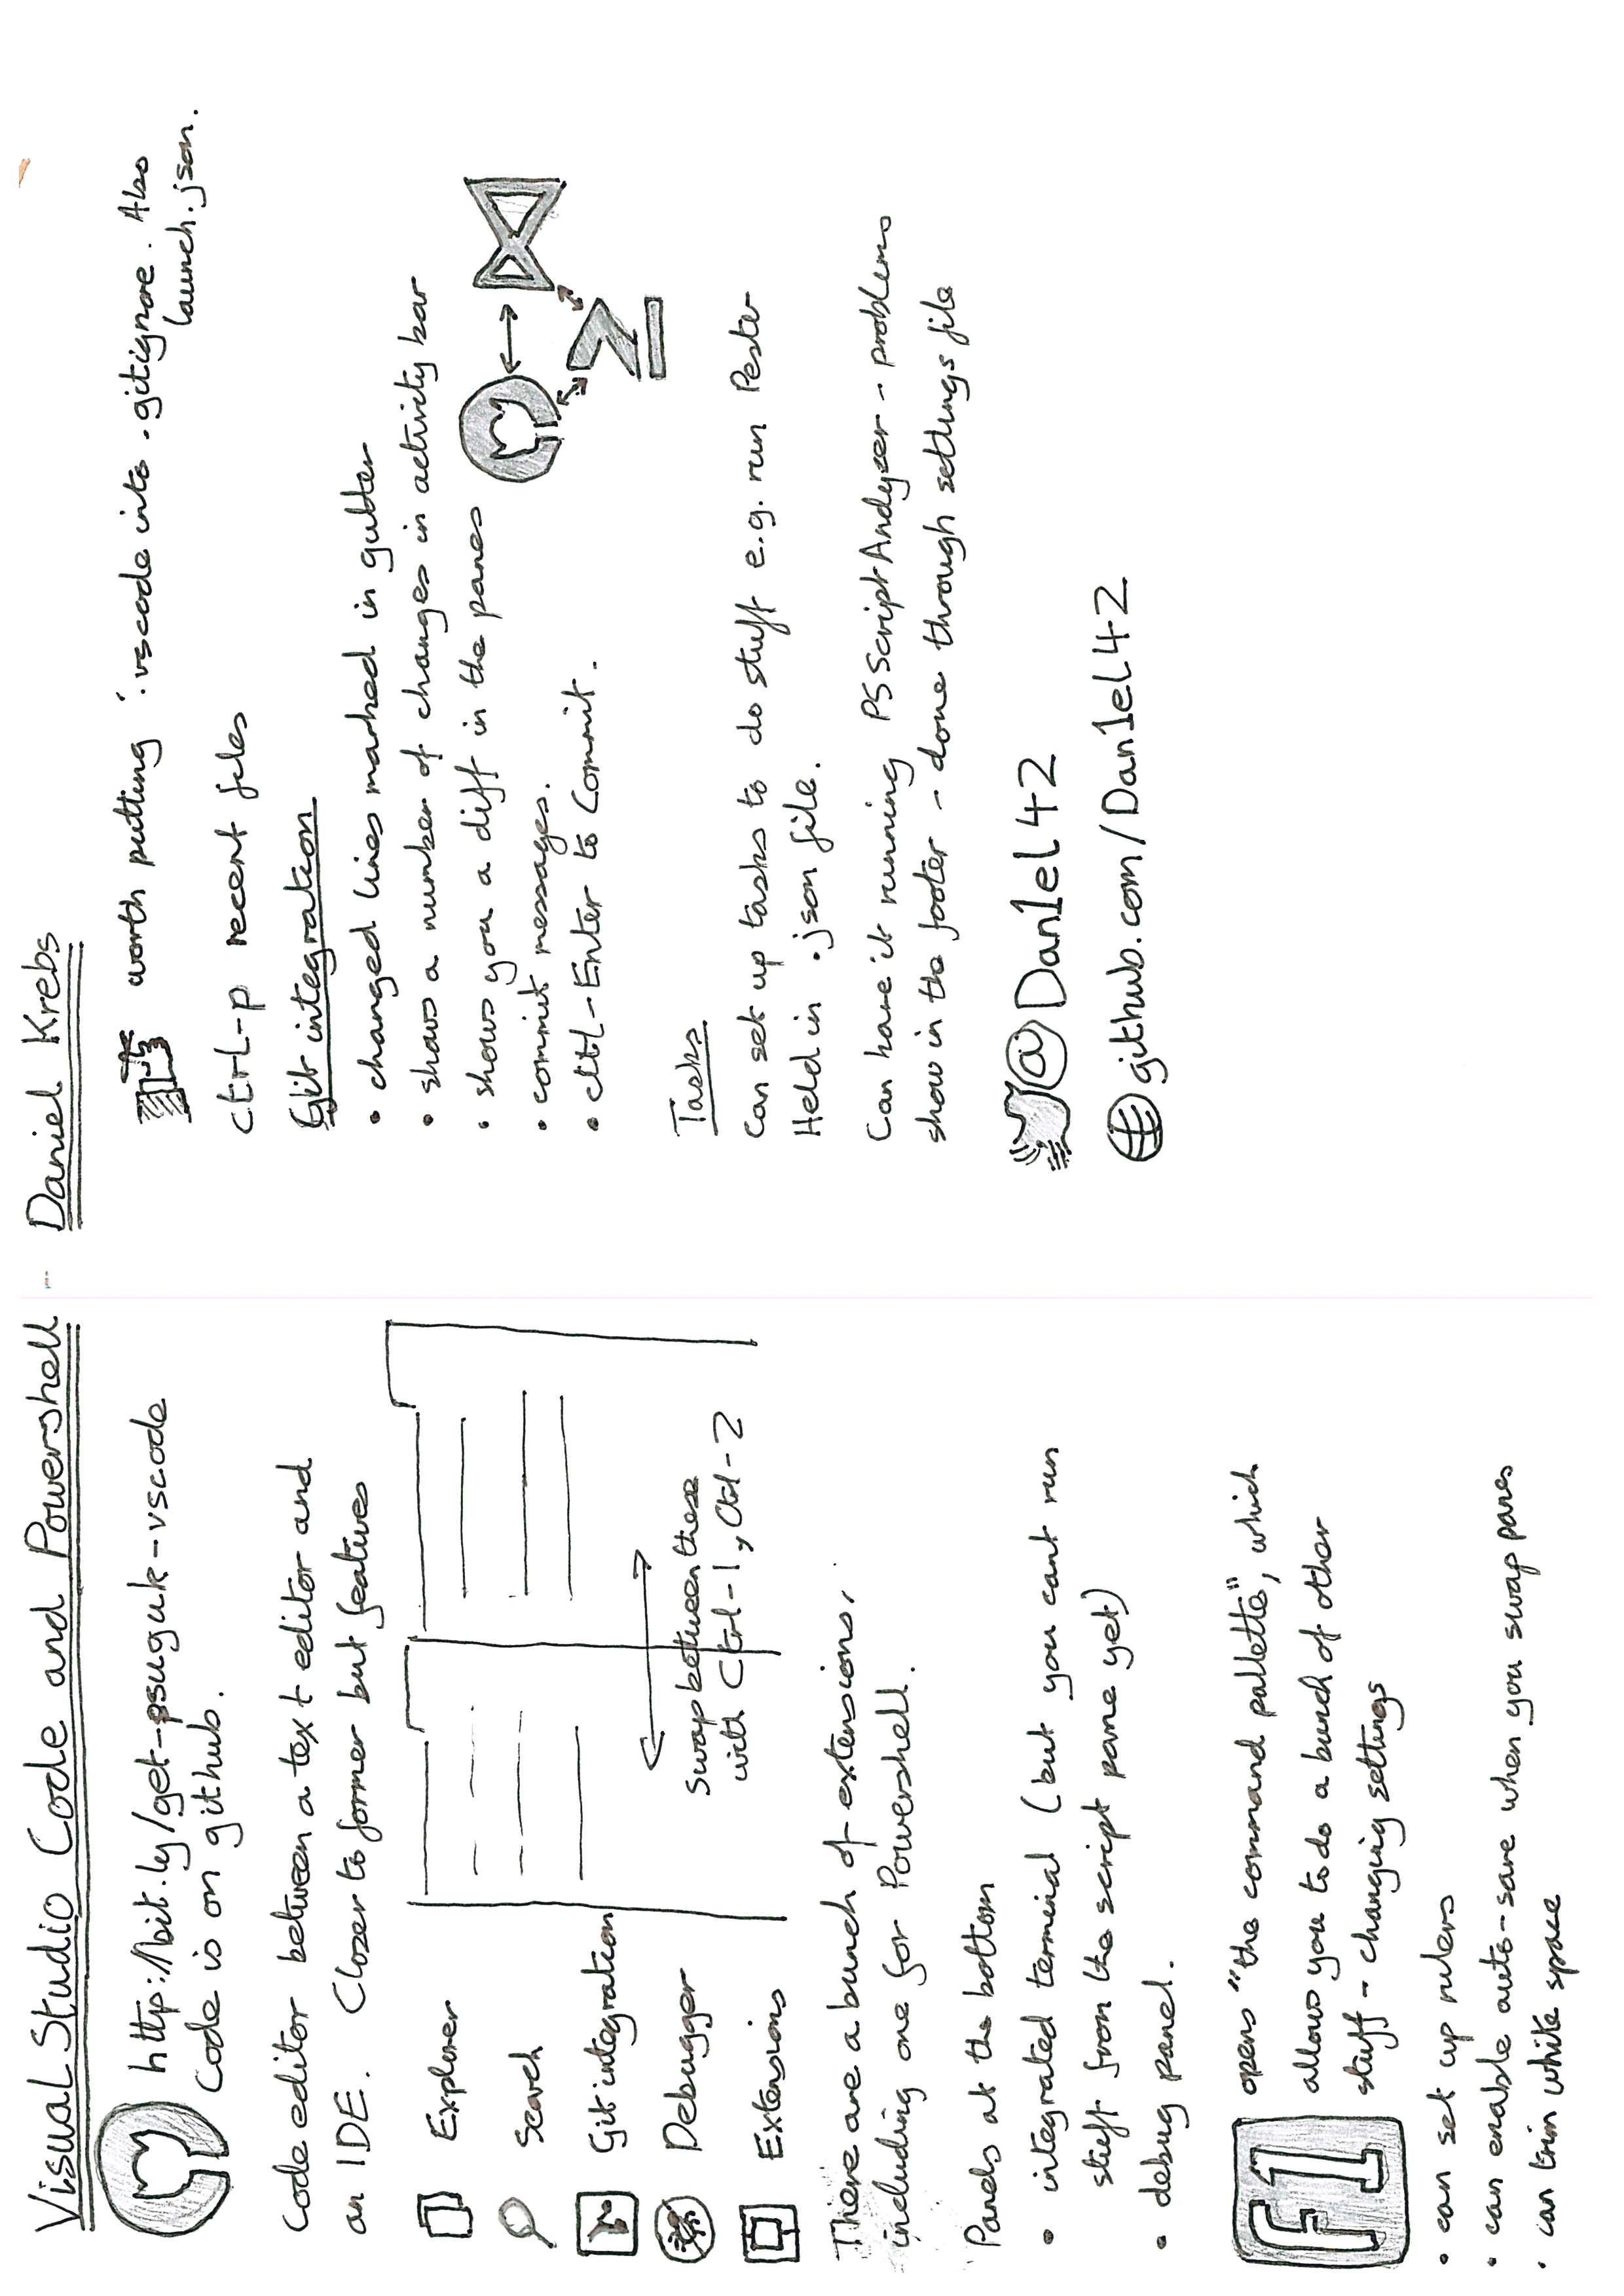 Visual Studio Code and Powershell - Daniel Krebs
http://bit.ly/get-psuguk-vscode
Code is on github.
Code editor between a text editor and
an IDE. Closer to former but features
Explorer
Search
Git integration
Debugger
Extensions
swap between these
with Ctrl-1, Ctrl-2
There are a bunch of extensions,
including one for Powershell.
Panels at the bottom
• integrated terminal (but you cant run
stuff from the script pane yet)
• debug panel.
F1
opens "the command pallette", which
allows you to do a bunch of other
stuff - changing settings
• can set up rulers
• can enable auto-save when you swap panes
• can trim white space
worth putting .vscode into .gitignore. Also
launch.json.
ctrl-p recent files
Git integration
• changed lines marked in gutter
• shows a number of changes in activity bar
• shows you a diff in the panes
• commit messages.
• ctrl-Enter to Commit.
Tasks
Can set up tasks to do stuff e.g. run Pester
Held in .json file.
Can have it running PSScriptAnalyzer - problems
show in the footer - done through settings file
@Dan1el42
github.com/Dan1el42